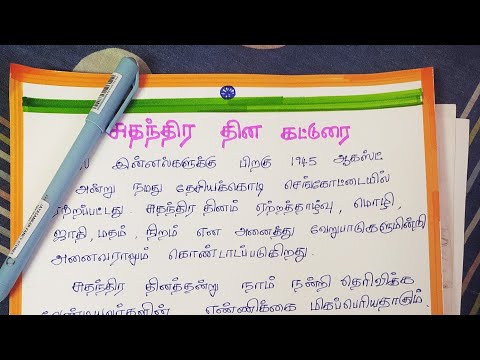 சுதந்திர தின கட்டுரை
இன்னல்களுக்கு பிறகு 1945 ஆகஸ்ட்
அன்று நமது தேசியக்கொடி செங்கோட்டையில்
ஏற்றப்பட்டது. சுதந்திர தினம் ஏற்றத்தாழ்வு, மொழி,
ஜாதி, மதம், நிறம் என அனைத்து வேறுபாடுகளுமின்றி
அனைவராலும் கொண்டாடப்படுகிறது.
சுதந்திர தினத்தன்று நாம் நன்றி தெரிவிக்க
வேண்டியவர்களின் எண்ணிக்கை மிகப்பெரியதாகும்.